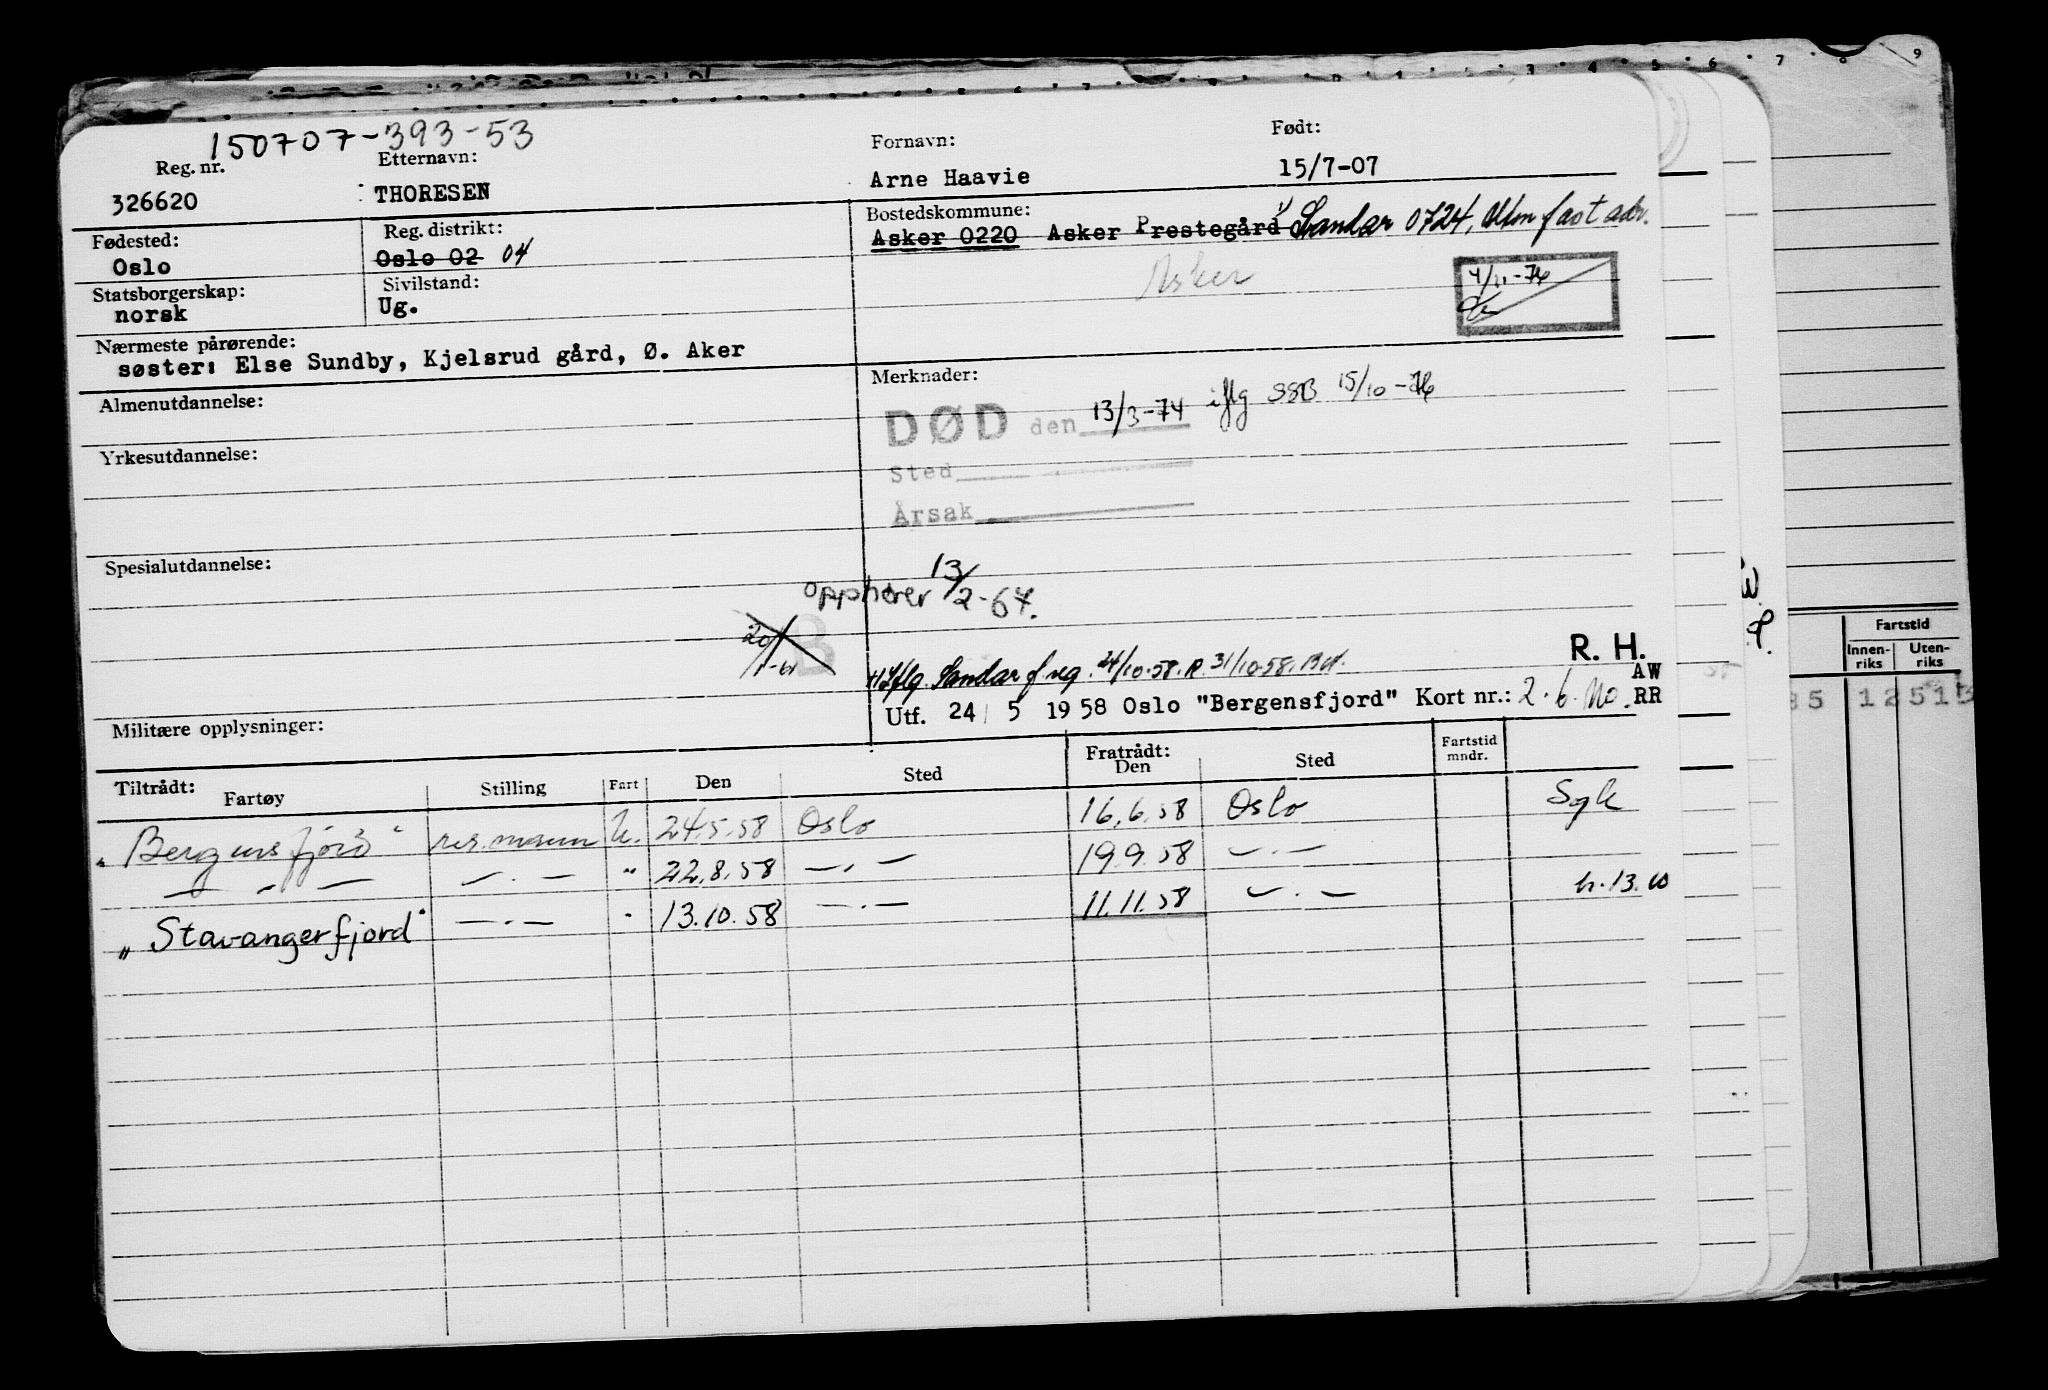 150707-393-53
Reg. nr. Etternavn: Fornavn: Født:
326620 THORESEN Arne Haavie 15/7-07
Fødested: Reg. distrikt: Bostedskommune:
Oslo Oslo 02 04 Asker 0220 Asker Prestegård Sandar 0724, uten fast adr.
Asker
4/11-76
Statsborgerskap: Sivilstand:
norsk Ug.
Nærmeste pårørende:
søster: Else Sundby, Kjelsrud gård, Ø. Aker
Almenutdannelse: Merknader:
DØD den 13/3-74 iflg SSB 15/10-76
Yrkesutdannelse:
Sted
Årsak
Spesialutdannelse:
opphører 13/2-64.
20/1-61 B
Iflg. Sandar f.reg. 24/10.58. R. 31/10-58.
R. H.
AW
Militære opplysninger: Utf. 24 5 1958 Oslo "Bergensfjord" Kort nr.: 2. RR
Tiltrådt: Fratrådt:
Fartøy Stilling Fart Den Sted Den Sted Fartstid mndr.
"Bergensfjord" res.mann U. 24.5.58 Oslo 16.6.58 Oslo Sgk
— " — — . — " 22.8.58 — . — 19.9.58 — . —
"Stavangerfjord" — . — " 13.10.58 — . — 11.11.58 — . — h.13.60
3 4 5 6 7 8 9
W.
Fartstid
Innen-riks Uten-riks
35 12 513